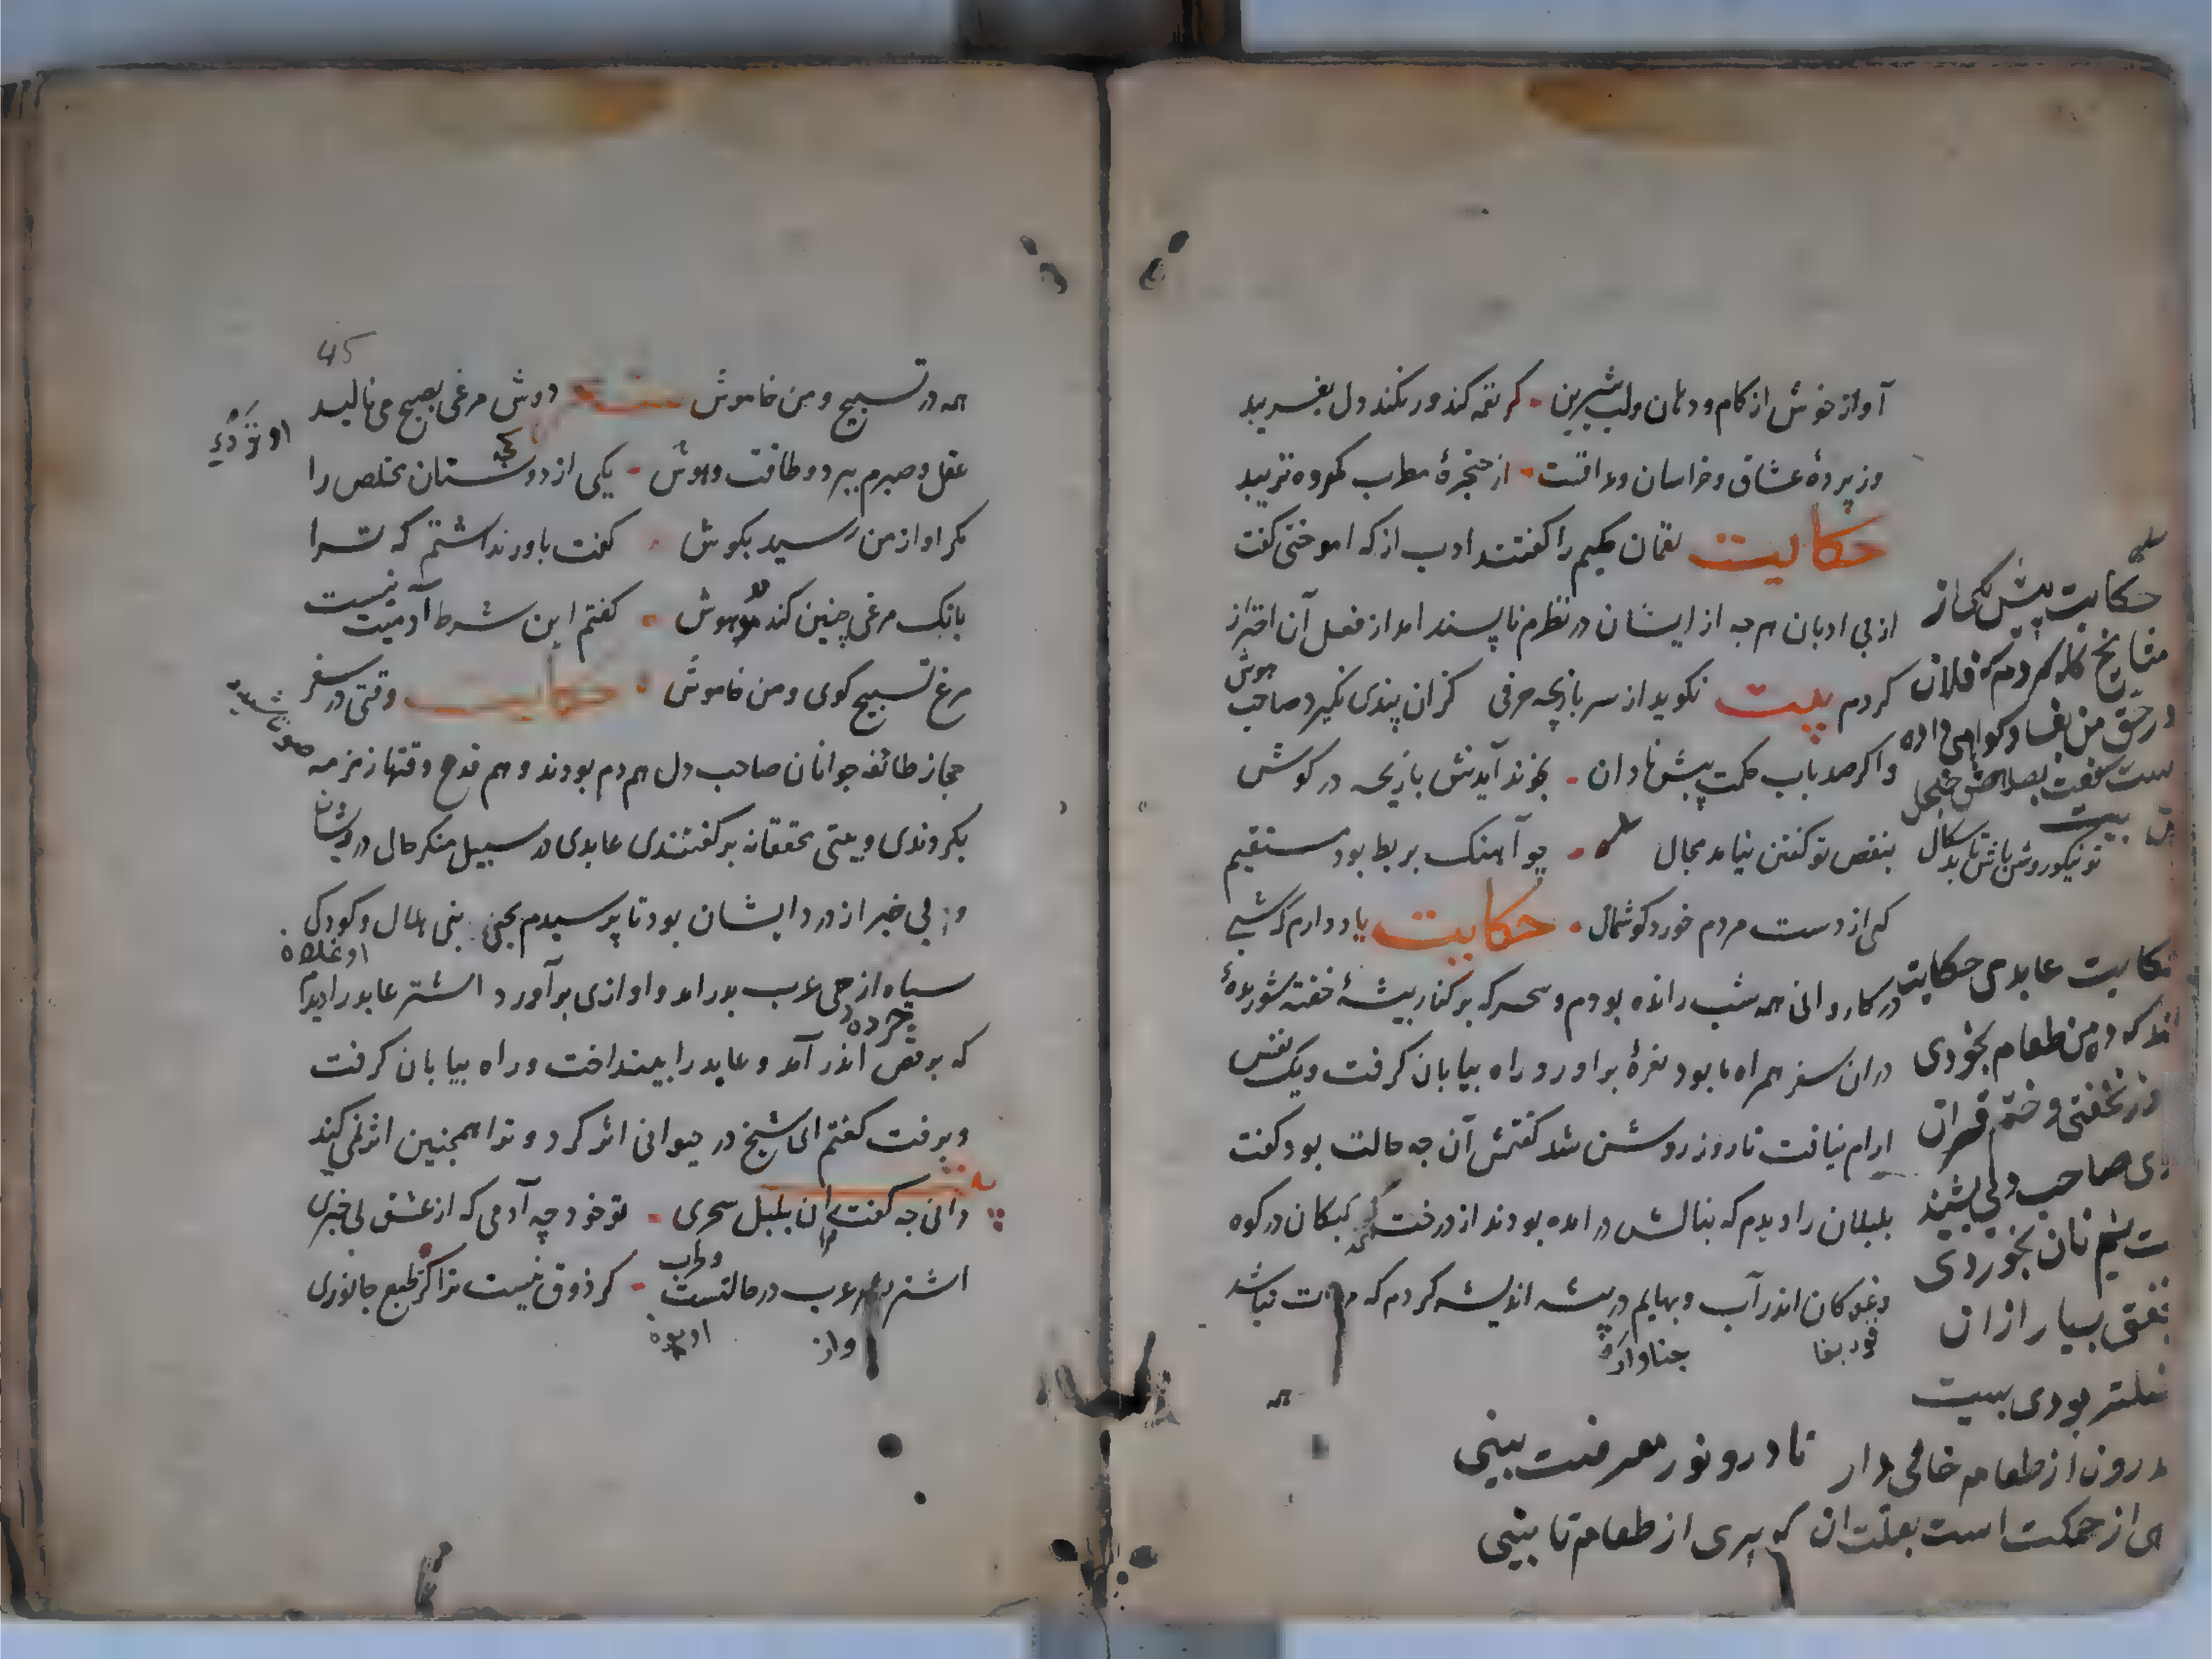 آواز خوش از کام و دهان و لب شیرین کر نغمه کند ور نکند دل بفریبد
ور پردهٔ عشاق و خراسان و عراقست از حنجرهٔ مطرب مکروه نزیبد
حکایت لقمان حکیم را کفتند ادب از که اموختی کفت
از بی ادبان هر چه از ایشان در نظرم ناپسند امد از فعل آن احتراز
کردم بیت نکوید از سر بازیچه حرفی کزان پندی نکیرد صاحب هوش
واکر صد باب حکمت پیش نادان بخوند آیدش بازیچه در کوش
بنقص تو کفتن نیابد مجال چو آهنک بربط بود مستقیم
کی از دست مردم خورد کوشمال حکایت یاد دارم که شبی
در کاروانی همه شب رانده بودم و سحرکه بر کنار بیشهٔ خفته شوریدهٔ
دران سفر همراه ما بود نعرهٔ براورد و راه بیابان کرفت و یک نفس
ارام نیافت تا روز روشن شد کفتمش آن چه حالت بود کفت
بلبلان را دیدم که بنالش در امده بودند از درخت و کبکان در کوه
و غوکان اندر آب و بهایم در بیشه اندیشه کردم که مروت نباشد
همه
حکایت پیش یکی از
مشایخ کله کردم که فلان
در حق من بفساد کواهی داده
ست کفت بصلاحش خجل
کن بیت
تو نیکو روش باش تا بد سکال
حکایت عابدی حکایت
اند که ده من طعام بخوردی
و ختم قران
کردی صاحب دلی بشنید
نیم نان بخوردی
بسیار ازان
فاضلتر بودی بیت
درون از طعام خالی دار تا درو نور معرفت بینی
تهی از حکمت است بعلت ان که پری از طعام تا بینی
45
همه در تسبیح و من خاموش دوش مرغی بصبح می نالید
عقل و صبرم ببرد و طاقت و هوش یکی از دوستان مخلص را
مکر اواز من رسید بکوش کفت باور نداشتم که ترا
بانک مرغی چنین کند مدهوش کفتم این شرط آدمیت نیست
مرغ تسبیح کوی و من خاموش حکایت وقتی در سفر
حجاز طائفه جوانان صاحب دل هم دم بودند و هم قدم وقتها زمزمه
بکردندی و بیتی محققانه بر کفتندی عابدی در سبیل منکر حال درویشان
و بی خبر از درد ایشان بود تا برسیدم بخیل بنی هلال و کودکی
اوغلان
سیاه از حی عرب بدر امد و اوازی بر آورد اشتر عابد را دیدم
که برقص اندر آمد و عابد را بینداخت و راه بیابان کرفت
و برفت کفتم ای شیخ در حیوانی اثر کرد و ترا همچنین اثر نمی کند
دانی چه کفت مرا ان بلبل سحری تو خود چه آدمی که از عشق بی خبری
اشتر بشعر عرب در حالتست و طرب کر ذوق نیست ترا کژ طبع جانوری